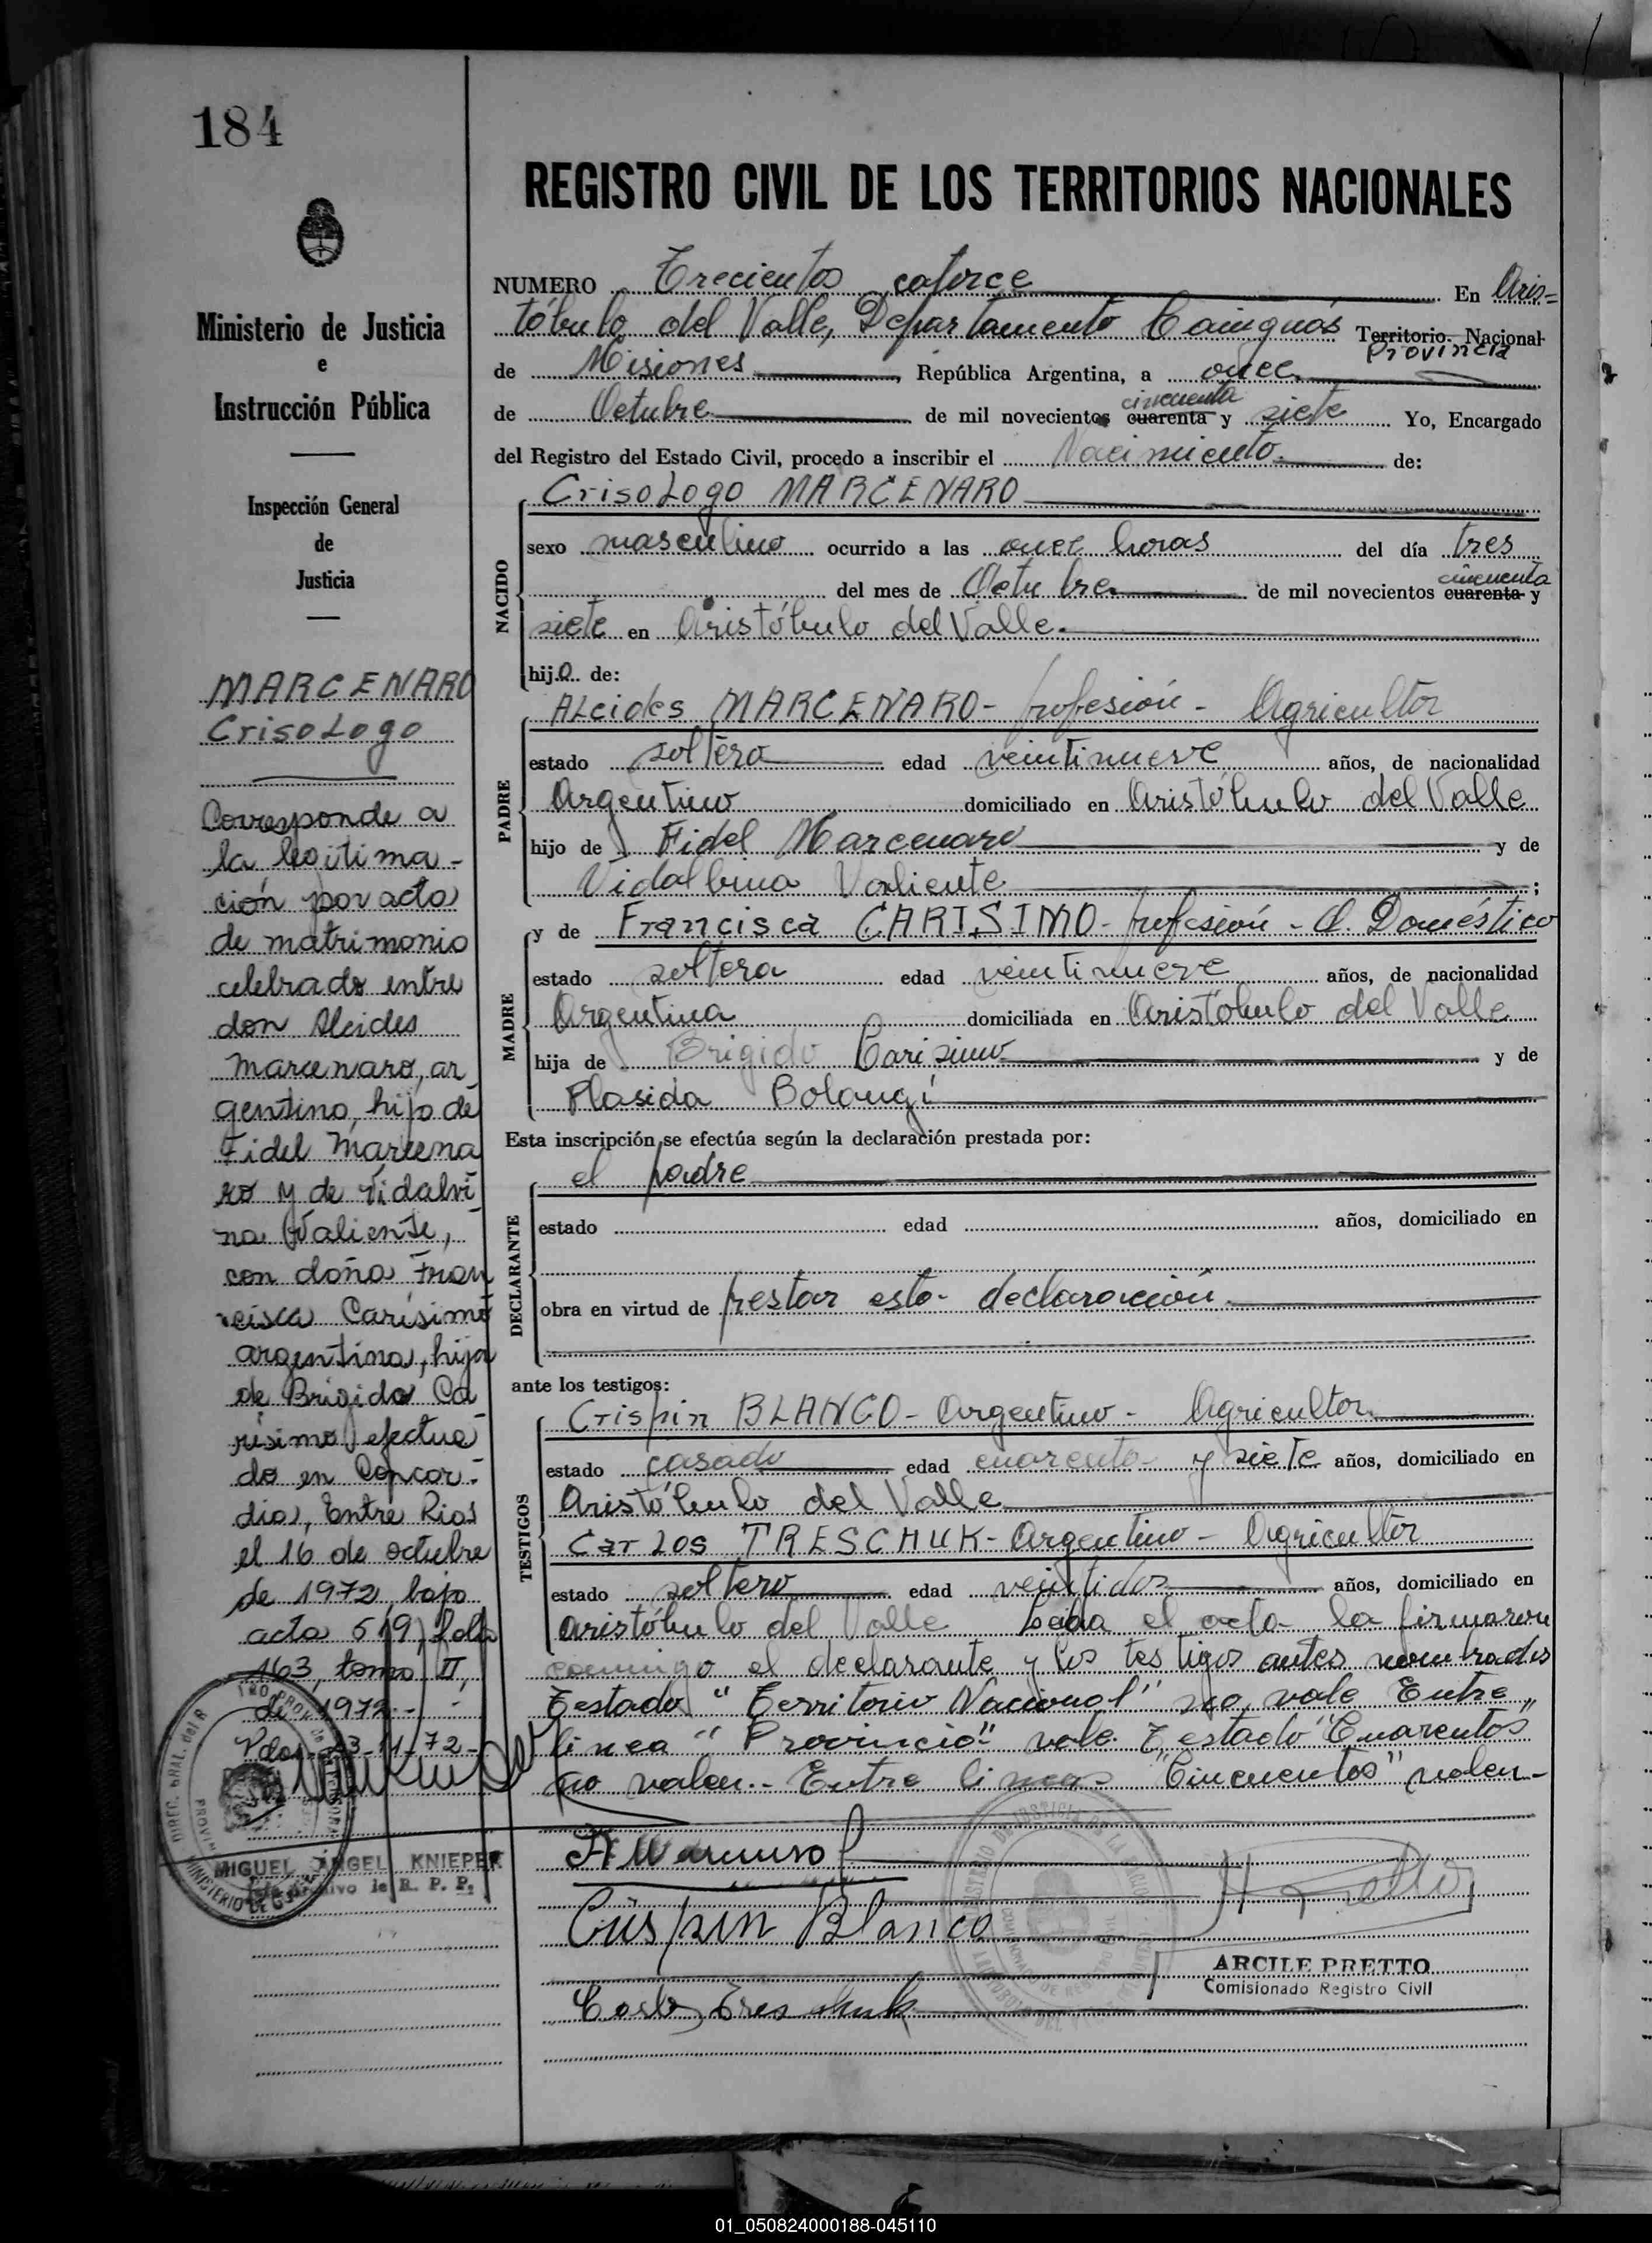 184
Ministerio de Justicia
e
Instrucción Pública
Inspección General
de
Justicia
MARCENARO
Crisologo
Corresponde a
la legitima-
ción por acta
de matrimonio
celebrado entre
don Alcides
Marcenaro, ar
gentino, hijo de
Fidel Marcena
ro y de Vidalvi
na Valiente,
con doña Fran
cisca Carísimo
argentina, hija
de Brigido Ca
rísimo efectua
do en Concor-
dia, Entre Rios
el 16 de octubre
de 1972, bajo
acta 519, folio
163, tomo II,
de 1972.-
Pdas. 23-11-72-
MIGUEL ANGEL KNIEPER
Archivo de R. P. P.
REGISTRO CIVIL DE LOS TERRITORIOS NACIONALES
NUMERO Trecientos catorce En Aris=
tóbulo del Valle, Departamento Cainguás Territorio Nacional
Provincia
de Misiones, República Argentina, a once
cincuenta
de Octubre de mil novecientos cuarenta y siete Yo, Encargado
del Registro del Estado Civil, procedo a inscribir el Nacimiento de:
Crisologo MARCENARO
NACIDO
sexo masculino ocurrido a las once horas del día tres
cincuenta
del mes de Octubre de mil novecientos cuarenta y
siete en Aristóbulo del Valle.
hijo de:
Alcides MARCENARO- profesión - Agricultor
PADRE
estado soltero edad veintinueve años, de nacionalidad
Argentino domiciliado en Aristóbulo del Valle
hijo de Fidel Marcenaro y de
Vidalbina Valiente;
y de Francisca CARISIMO- profesión - Q. Doméstico
MADRE
estado soltera edad veintinueve años, de nacionalidad
Argentina domiciliada en Aristóbulo del Valle
hija de Brigido Carisimo y de
Plasida Bolangí
Esta inscripción se efectúa según la declaración prestada por:
el padre
DECLARANTE
estado edad años, domiciliado en
obra en virtud de prestar esta declaración
ante los testigos:
TESTIGOS
Crispin BLANCO- Argentino- Agricultor
estado casado edad cuarenta y siete años, domiciliado en
Aristóbulo del Valle
Carlos TRESCHUK- Argentino- Agricultor
estado soltero edad veintidos años, domiciliado en
Aristóbulo del Valle Leda el acta la firmaron
conmigo el declarante y los testigos antes nombrados
Testado "Territorio Nacional" no vale Entre
linea "Provincia" vale Testado "Cuarentas"
no valen.- Entre lineas "Cincuentas" valen-
Crispin Blanco
Carlos Treschuk
ARCILE PRETTO
Comisionado Registro Civil
01_050824000188-045110